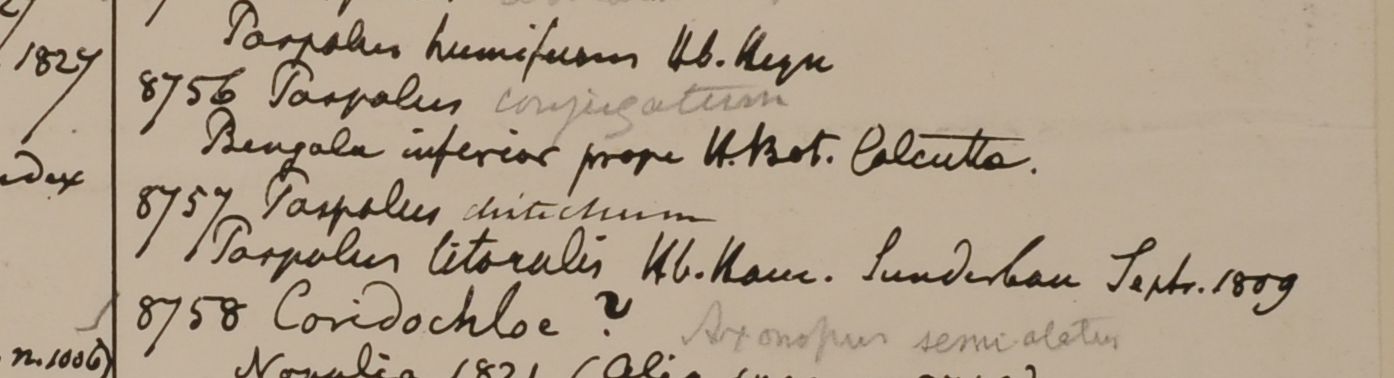 1827
Paspalus humifusus Hb. Heyn
8756 Paspalus conjugatum
Bengala inferior prope H. Bot. Calcutta.
8757 Paspalus distichum
Paspalus litoralis Hb. Ham. Sunderban Septr. 1809
8758 Coridochloe ?
Axonopus semialatus
n. 1006)
Nopalia 1821 (Alia